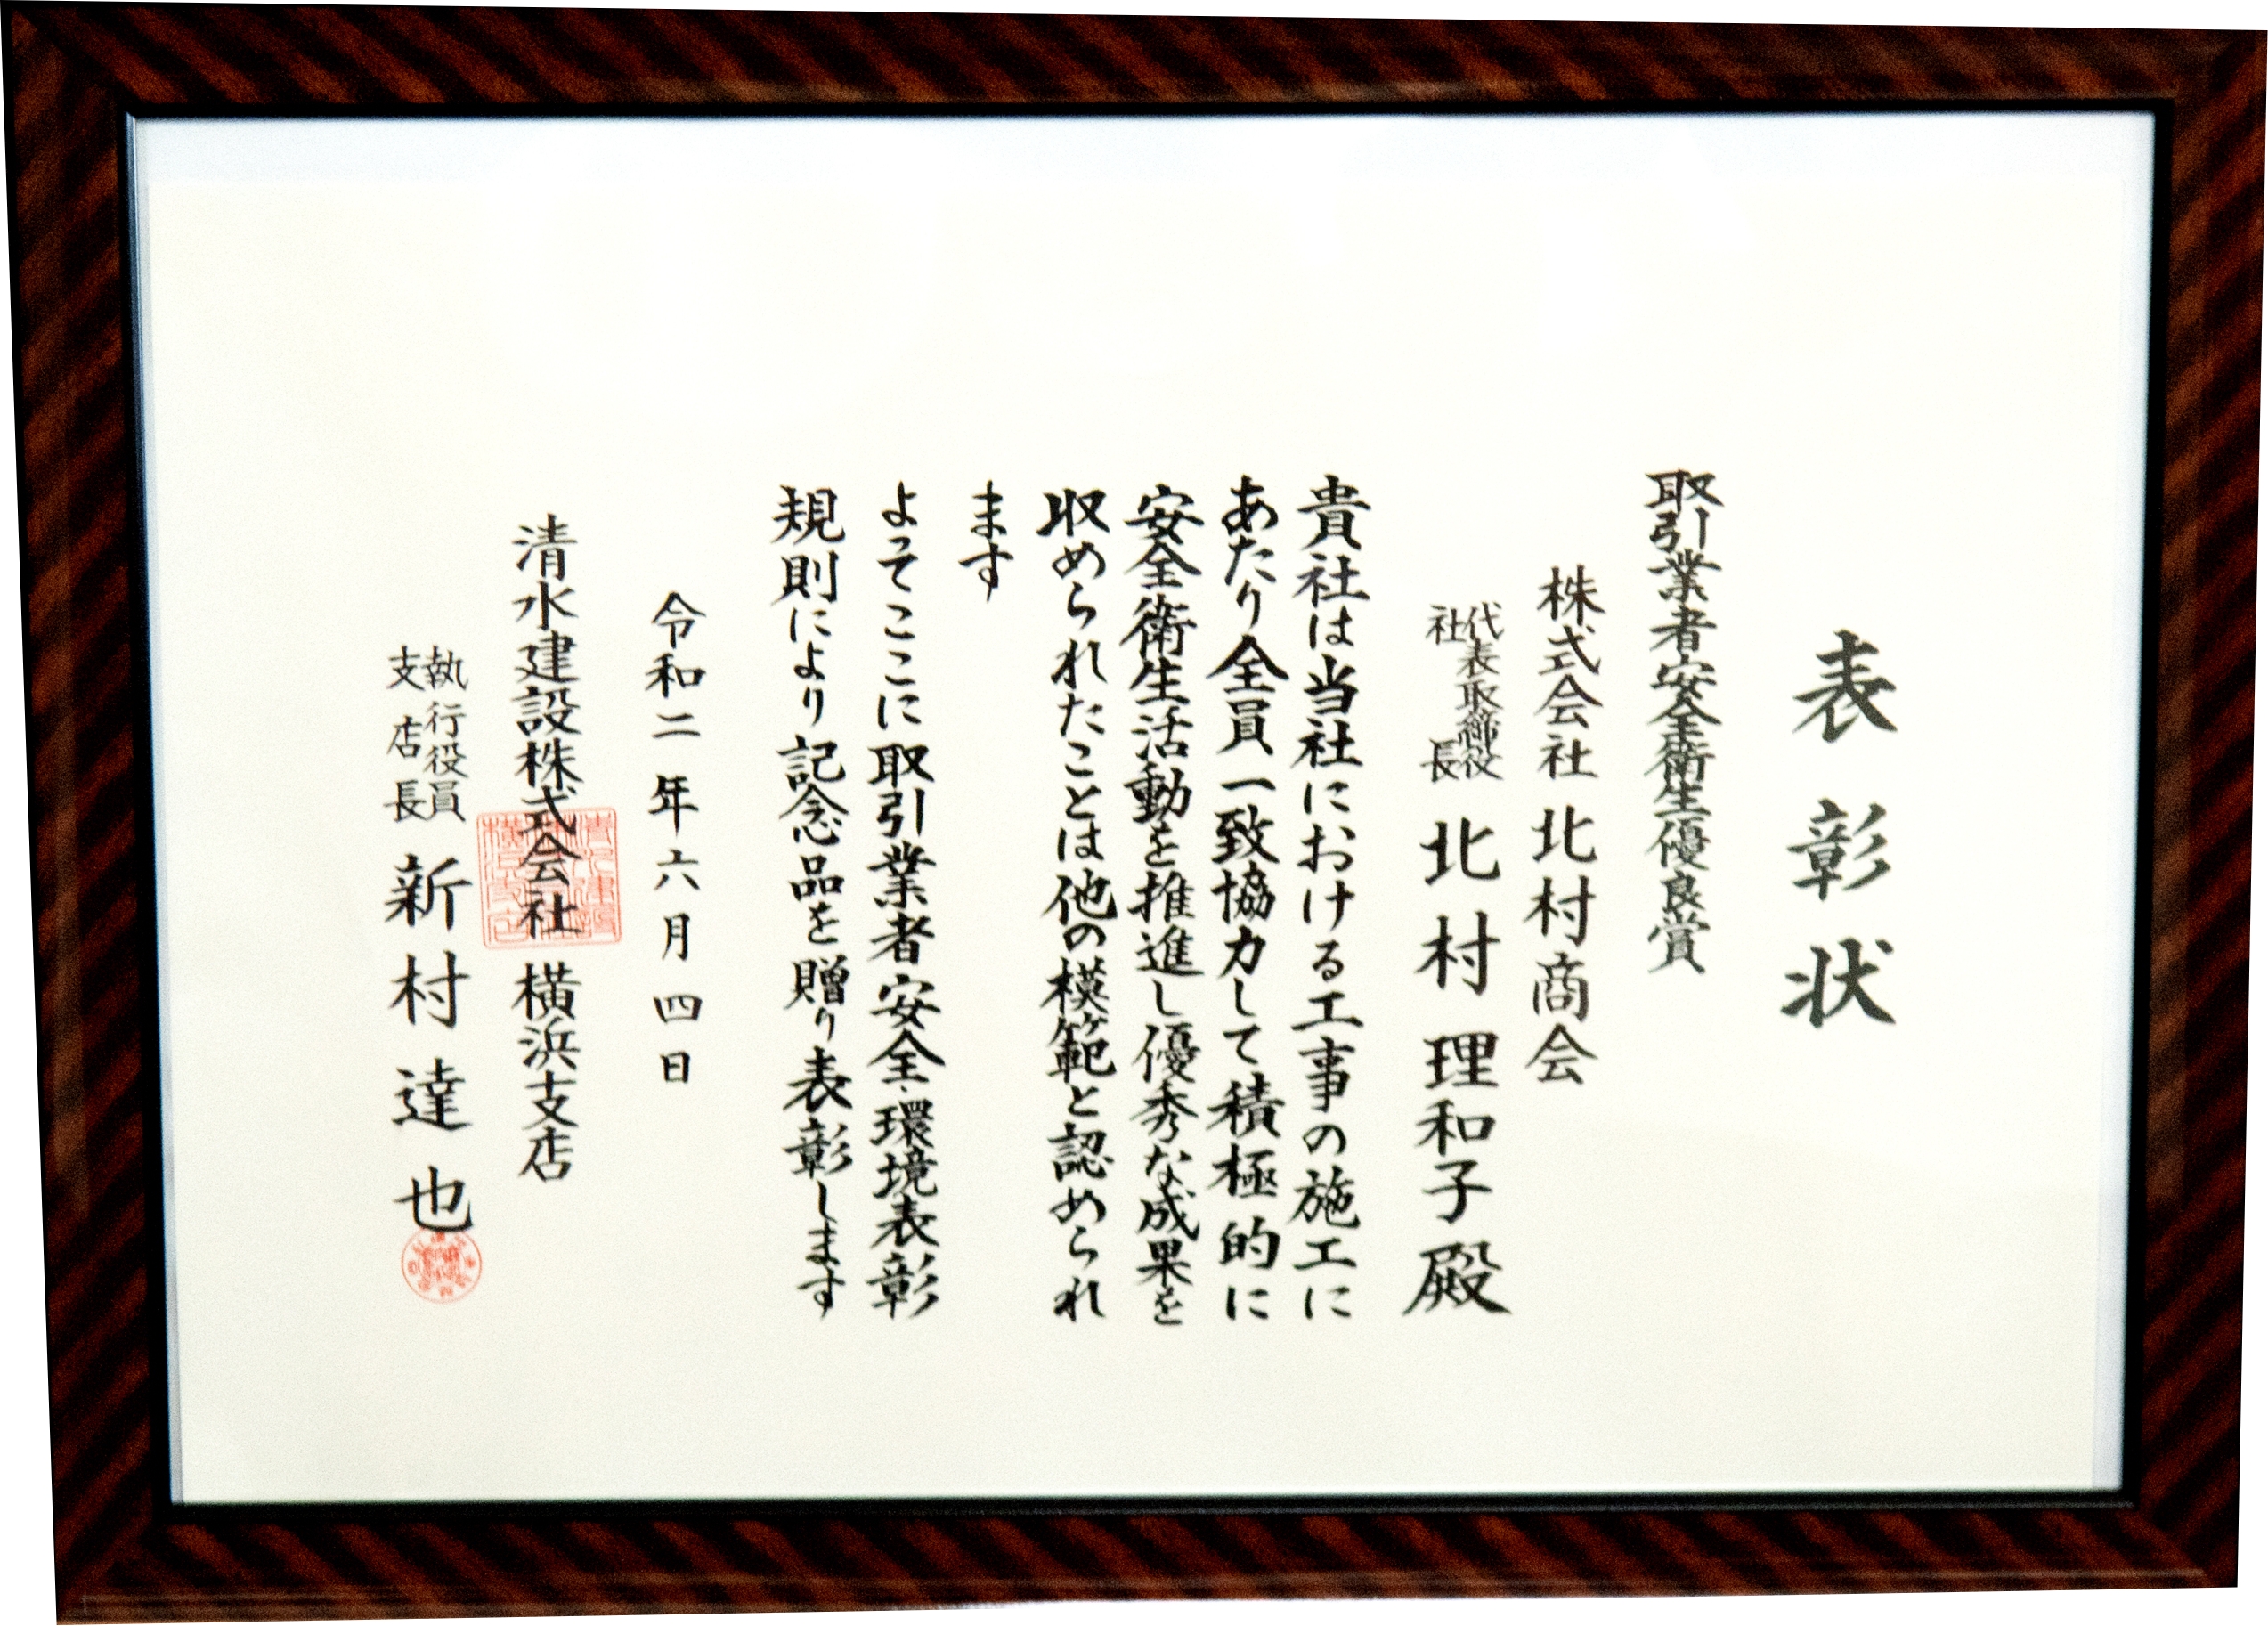 表彰状
取引業者安全衛生優良賞
株式会社 北村商会
代表取締役
社長
北村 理和子 殿
貴社は当社における工事の施工に
あたり全員一致協力して積極的に
安全衛生活動を推進し優秀な成果を
収められたことは他の模範と認められ
ます
よってここに取引業者安全・環境表彰
規則により記念品を贈り表彰します
令和二年六月四日
清水建設株式会社 横浜支店
執行役員
支店長
新村達也